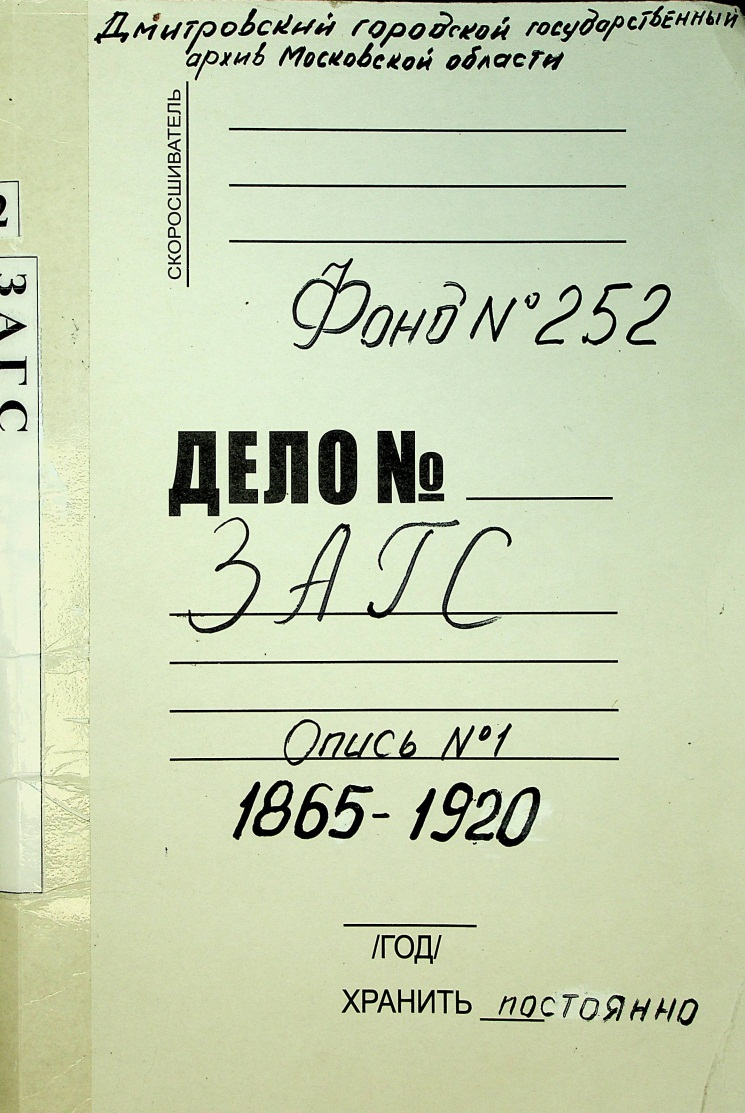 Дмитровский городской государственный
архив Московской области
СКОРОСШИВАТЕЛЬ
Фонд №252
ДЕЛО №
ЗАГС
Опись №1
1865-1920
/ГОД/
ХРАНИТЬ постоянно
2
ЗАГС